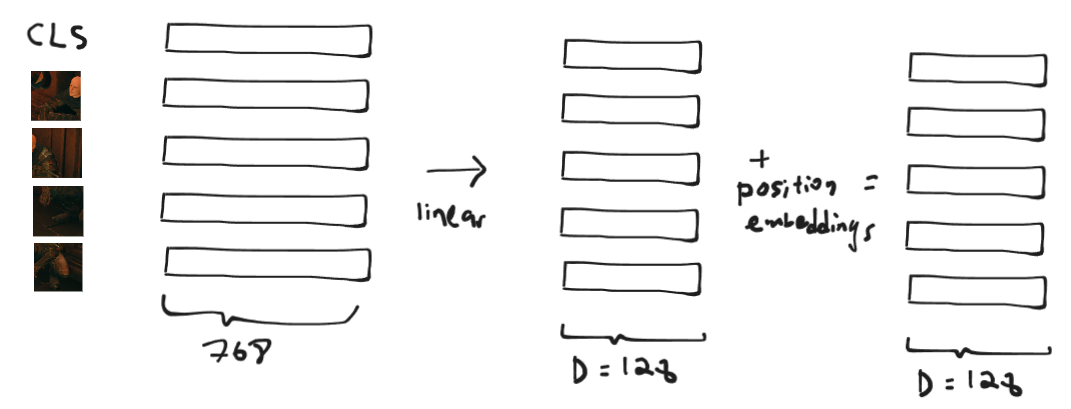 CLS
768
linear
D = 128
+
position =
embeddings
D = 128